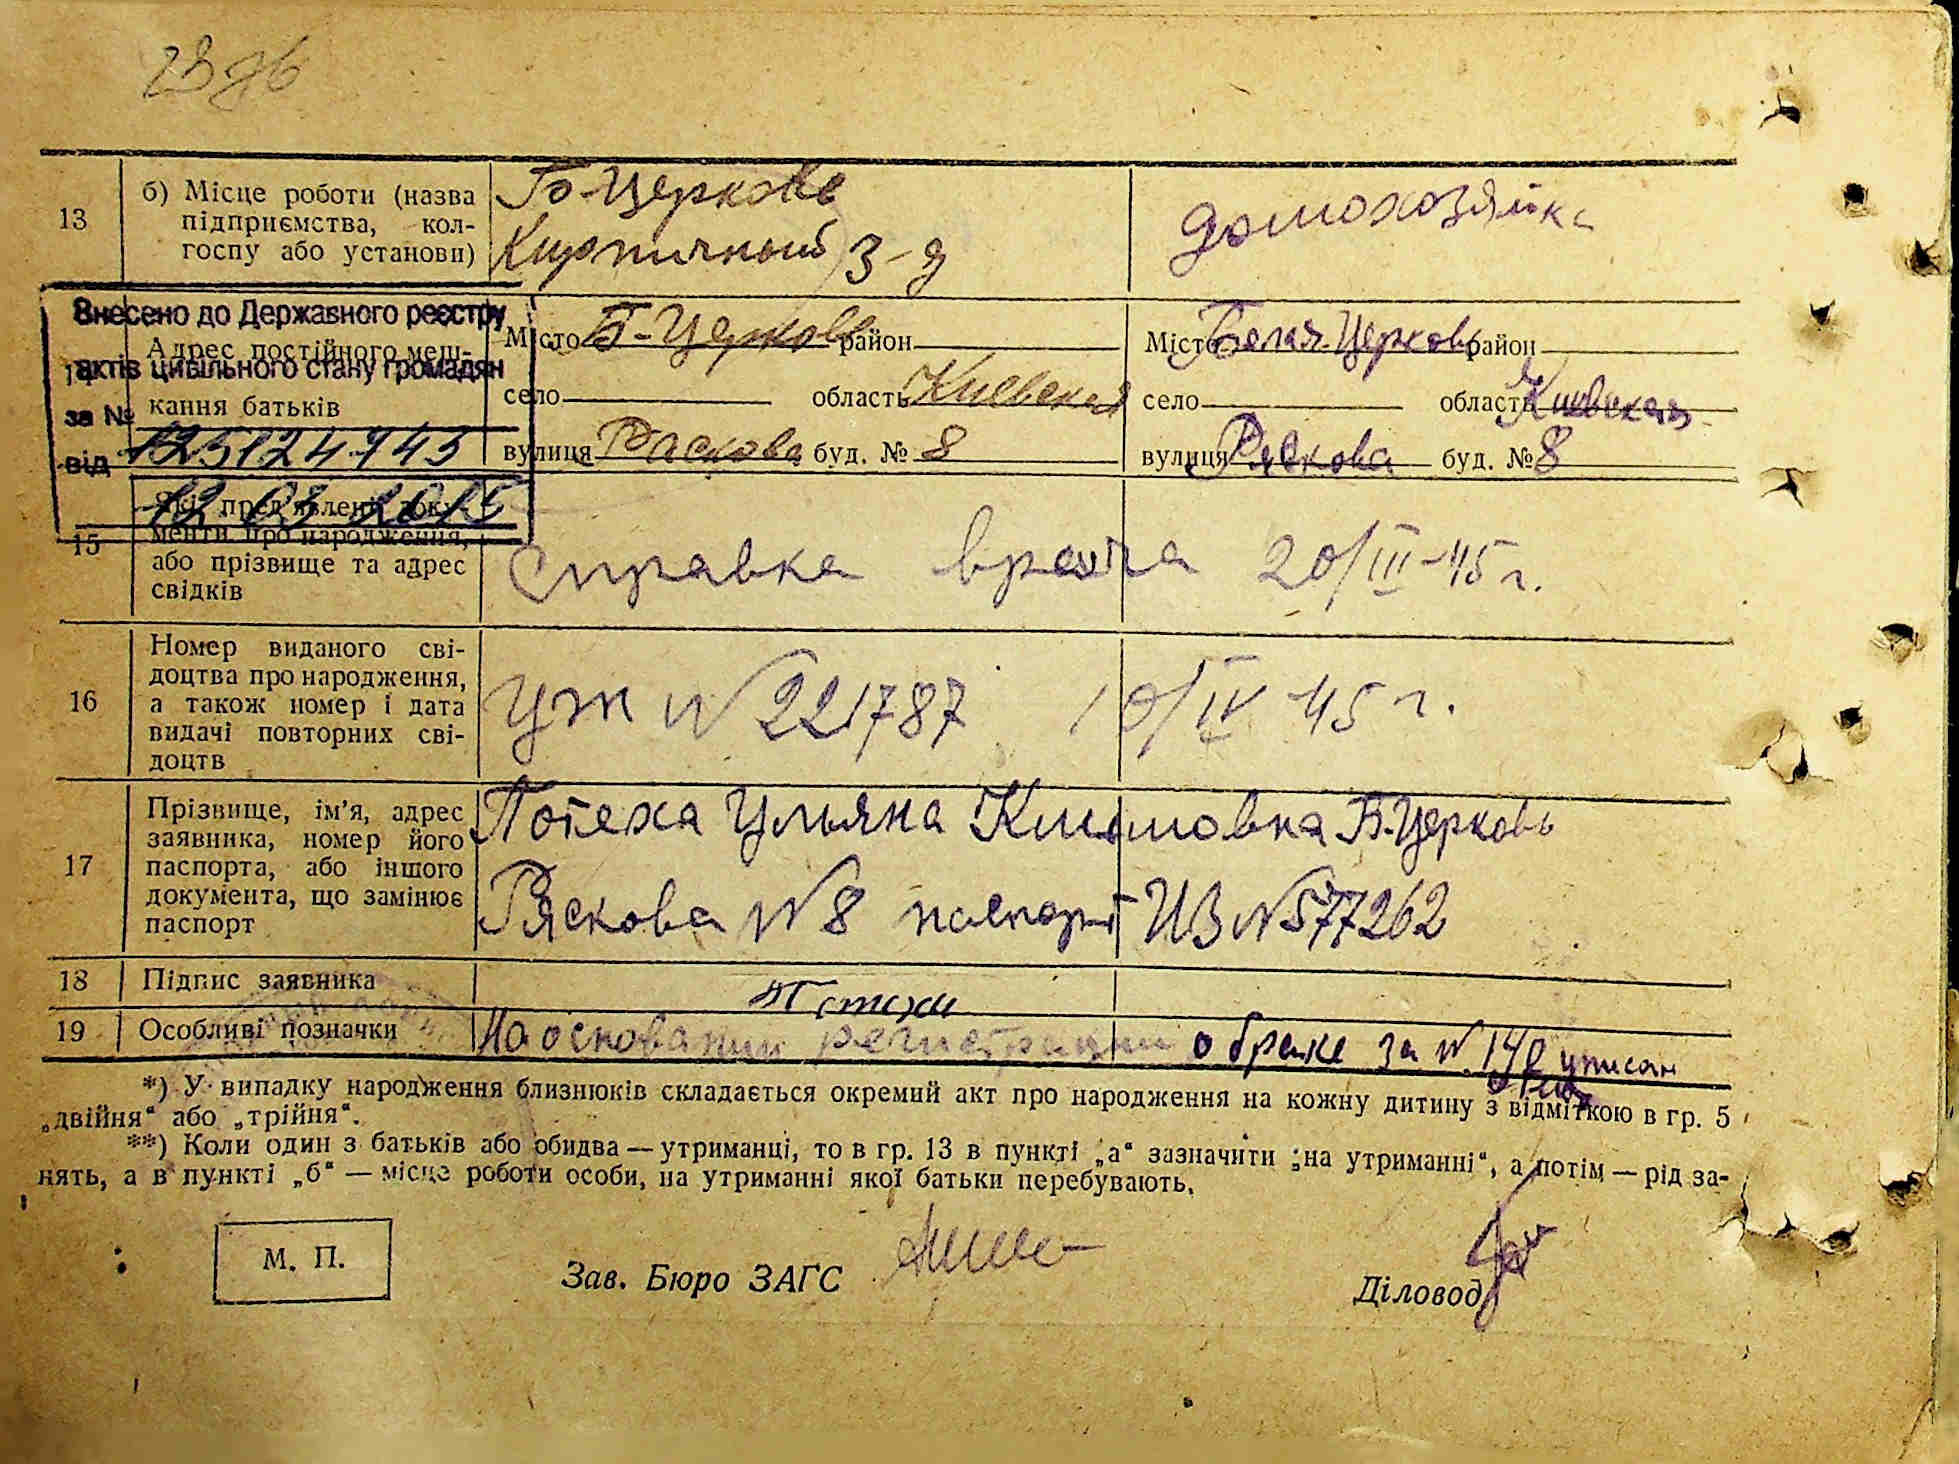 13
б) Місце роботи (назва
підприємства, кол-
госпу або установи)
Б-Церковь
Кирпичный з-д
домохозяйка
Внесено до Державного реєстру
актів цивільного стану громадян
за №
125124943
від
12 03 2015
Адрес постійного меш-
кання батьків
Місто Б-Церковь район
село область Киевская
вулиця Раскова буд. № 8
Місто Белая-Церковь район
село область Киевская
вулиця Раскова буд. № 8
15
Які пред'явлені доку-
менти про народження,
або прізвище та адрес
свідків
Справка врача 20/III-45 г.
16
Номер виданого сві-
доцтва про народження,
а також номер і дата
видачі повторних сві-
доцтв
УЖ № 221787 10/IV-45 г.
17
Прізвище, ім'я, адрес
заявника, номер його
паспорта, або іншого
документа, що замінює
паспорт
Потеха Ульяна Климовна Б.Церковь
Раскова № 8 паспорт ИВ № 577262
18
Підпис заявника
19
Особливі позначки
На основании регистрации о браке за №
*) У випадку народження близнюків складається окремий акт про народження на кожну дитину з відміткою в гр. 5
„двійня“ або „трійня“.
**) Коли один з батьків або обидва — утриманці, то в гр. 13 в пункті „а“ зазначити „на утриманні“, а потім — рід за-
нять, а в пункті „б“ — місце роботи особи, на утриманні якої батьки перебувають.
М. П.
Зав. Бюро ЗАГС
Діловод